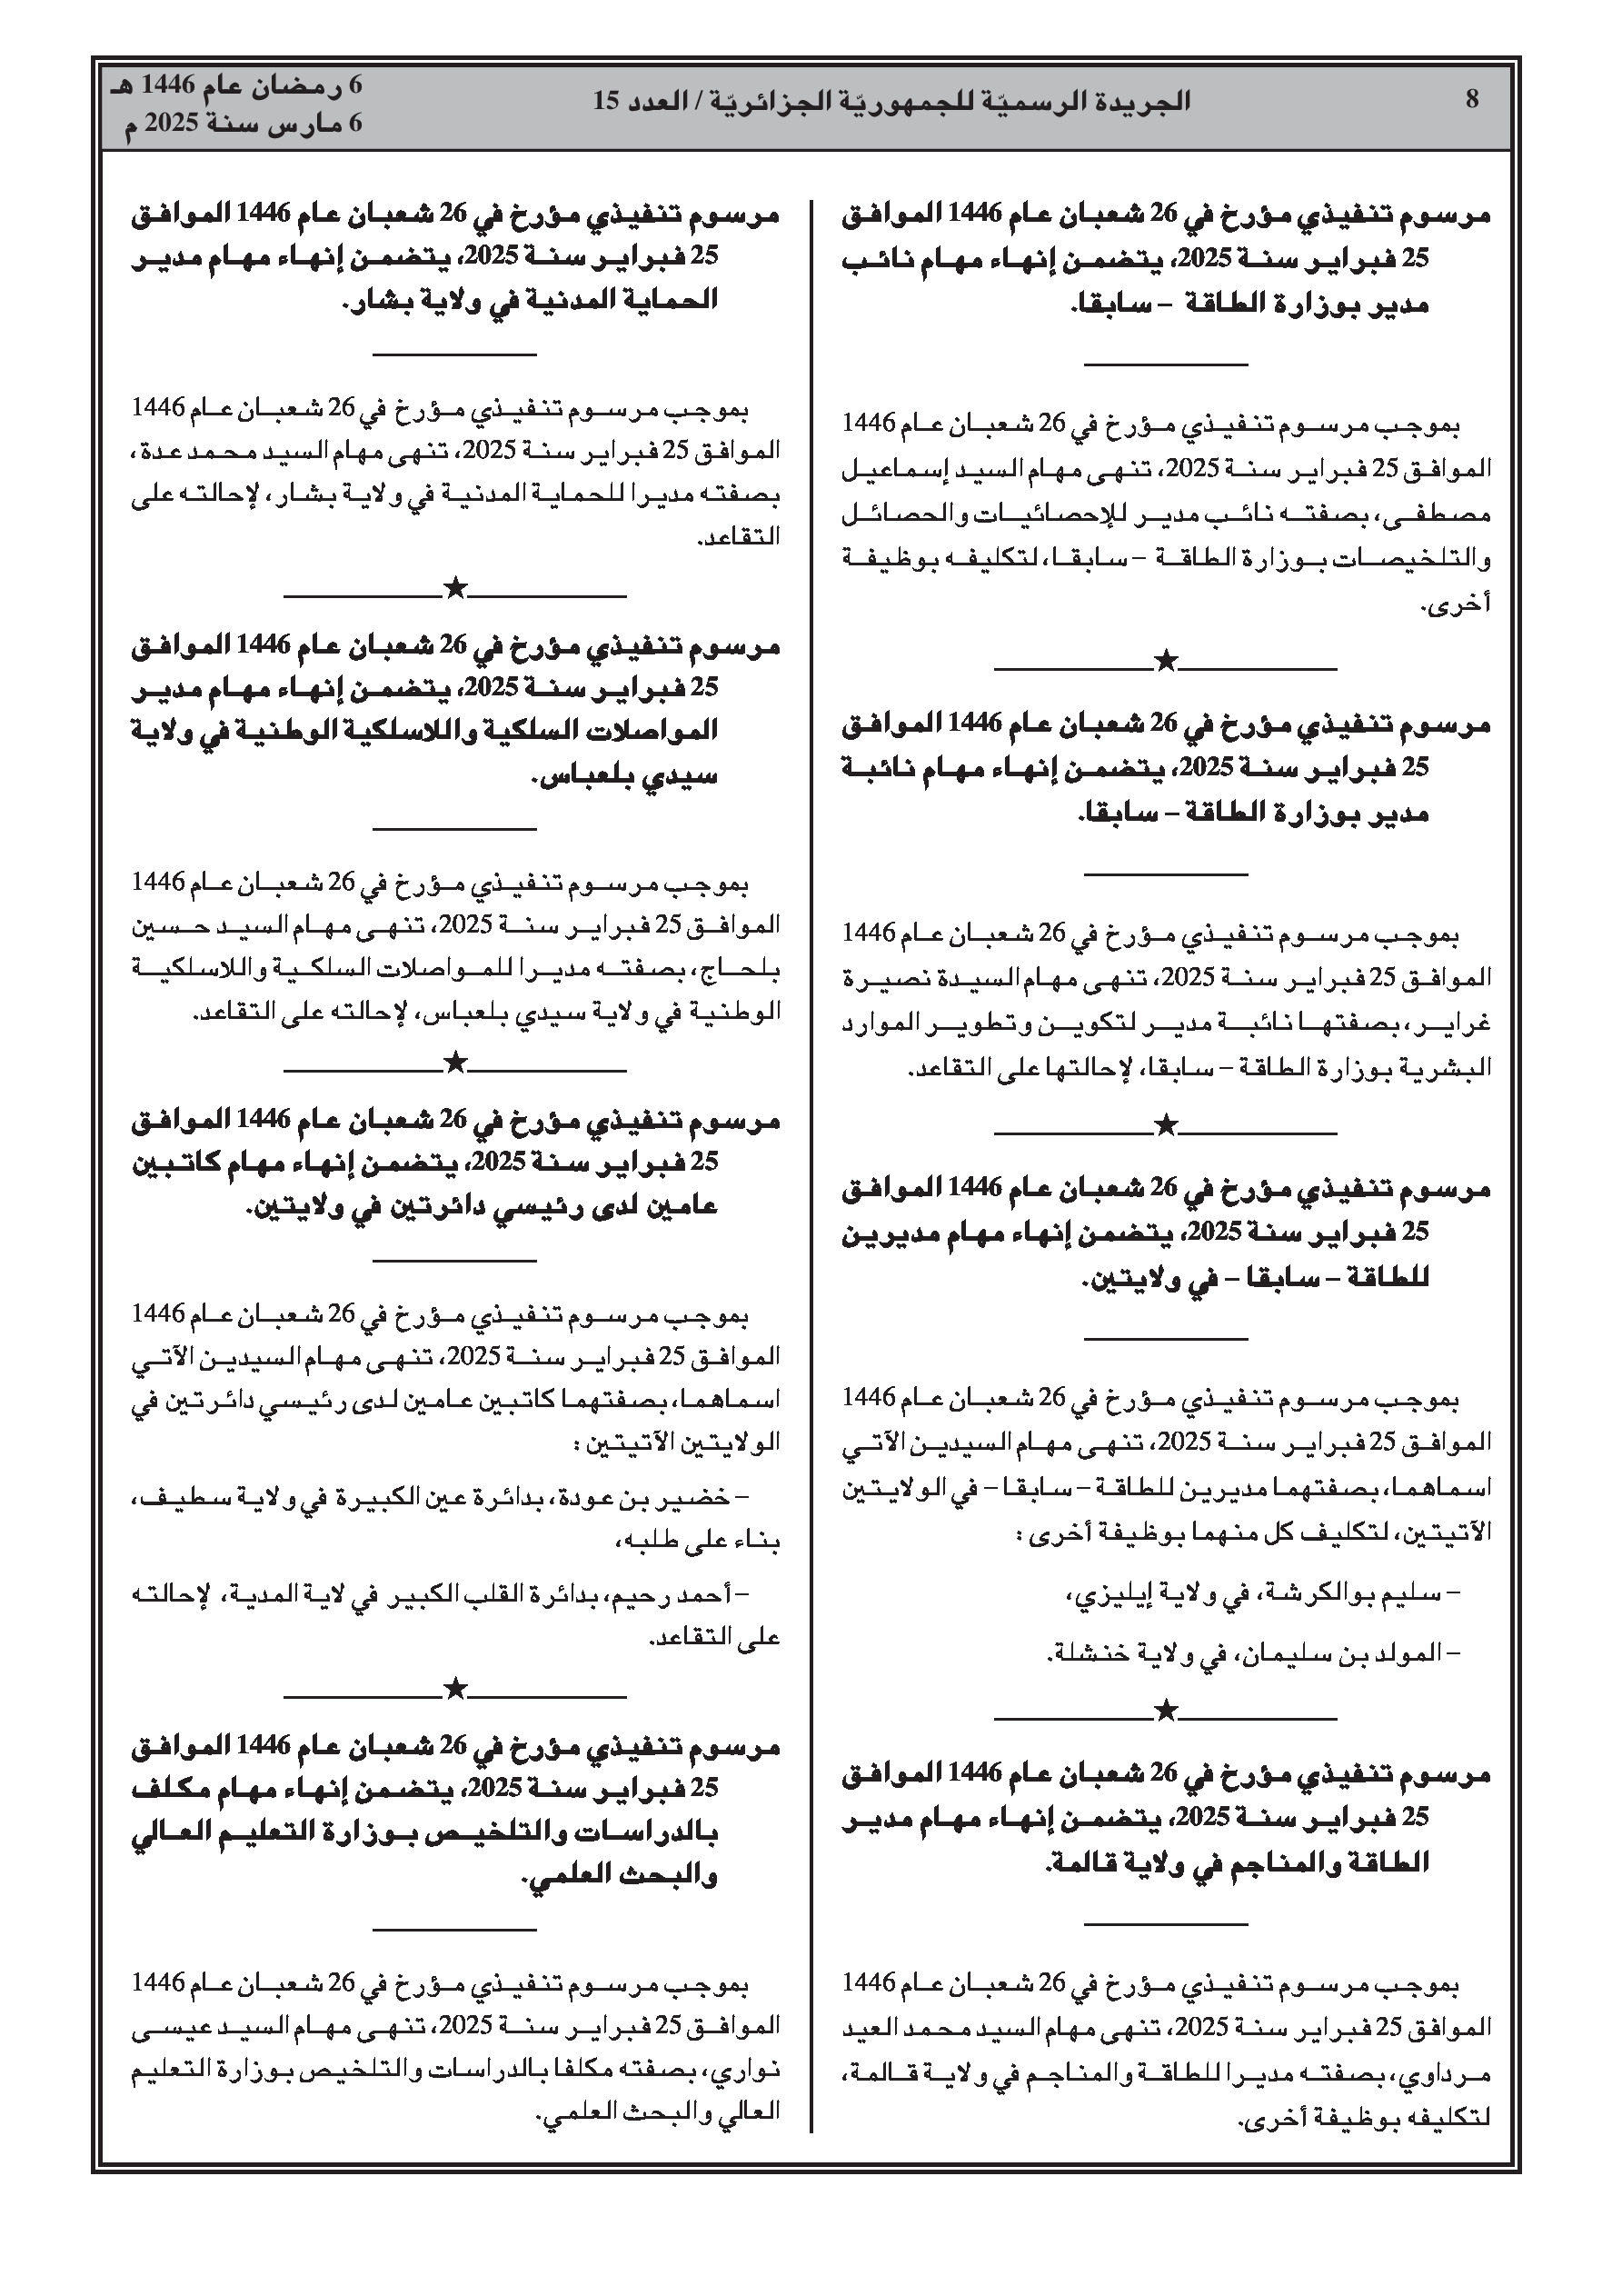 8
الجريدة الرسميّة للجمهوريّة الجزائريّة / العدد 15
6 رمضان عام 1446 هـ
6 مارس سنة 2025 م
مرسوم تنفيذي مؤرخ في 26 شعبان عام 1446 الموافق
25 فبراير سنة 2025، يتضمن إنهاء مهام نائب
مدير بوزارة الطاقة – سابقا.
بموجب مرسوم تنفيذي مؤرخ في 26 شعبان عام 1446
الموافق 25 فبراير سنة 2025، تنهى مهام السيد إسماعيل
مصطفى، بصفته نائب مدير للإحصائيات والحصائل
والتلخيصات بوزارة الطاقة – سابقا، لتكليفه بوظيفة
أخرى.
مرسوم تنفيذي مؤرخ في 26 شعبان عام 1446 الموافق
25 فبراير سنة 2025، يتضمن إنهاء مهام نائبة
مدير بوزارة الطاقة – سابقا.
بموجب مرسوم تنفيذي مؤرخ في 26 شعبان عام 1446
الموافق 25 فبراير سنة 2025، تنهى مهام السيدة نصيرة
غراير، بصفتها نائبة مدير لتكوين وتطوير الموارد
البشرية بوزارة الطاقة – سابقا، لإحالتها على التقاعد.
مرسوم تنفيذي مؤرخ في 26 شعبان عام 1446 الموافق
25 فبراير سنة 2025، يتضمن إنهاء مهام مديرين
للطاقة – سابقا – في ولايتين.
بموجب مرسوم تنفيذي مؤرخ في 26 شعبان عام 1446
الموافق 25 فبراير سنة 2025، تنهى مهام السيدين الآتي
اسماهما، بصفتهما مديرين للطاقة – سابقا – في الولايتين
الآتيتين، لتكليف كل منهما بوظيفة أخرى :
– سليم بوالكرشة، في ولاية إيليزي،
– المولد بن سليمان، في ولاية خنشلة.
مرسوم تنفيذي مؤرخ في 26 شعبان عام 1446 الموافق
25 فبراير سنة 2025، يتضمن إنهاء مهام مدير
الطاقة والمناجم في ولاية قالمة.
بموجب مرسوم تنفيذي مؤرخ في 26 شعبان عام 1446
الموافق 25 فبراير سنة 2025، تنهى مهام السيد محمد العيد
مرداوي، بصفته مديرا للطاقة والمناجم في ولاية قالمة،
لتكليفه بوظيفة أخرى.
مرسوم تنفيذي مؤرخ في 26 شعبان عام 1446 الموافق
25 فبراير سنة 2025، يتضمن إنهاء مهام مدير
الحماية المدنية في ولاية بشار.
بموجب مرسوم تنفيذي مؤرخ في 26 شعبان عام 1446
الموافق 25 فبراير سنة 2025، تنهى مهام السيد محمد عدة،
بصفته مديرا للحماية المدنية في ولاية بشار، لإحالته على
التقاعد.
مرسوم تنفيذي مؤرخ في 26 شعبان عام 1446 الموافق
25 فبراير سنة 2025، يتضمن إنهاء مهام مدير
المواصلات السلكية واللاسلكية الوطنية في ولاية
سيدي بلعباس.
بموجب مرسوم تنفيذي مؤرخ في 26 شعبان عام 1446
الموافق 25 فبراير سنة 2025، تنهى مهام السيد حسين
بلحاج، بصفته مديرا للمواصلات السلكية واللاسلكية
الوطنية في ولاية سيدي بلعباس، لإحالته على التقاعد.
مرسوم تنفيذي مؤرخ في 26 شعبان عام 1446 الموافق
25 فبراير سنة 2025، يتضمن إنهاء مهام كاتبين
عامين لدى رئيسي دائرتين في ولايتين.
بموجب مرسوم تنفيذي مؤرخ في 26 شعبان عام 1446
الموافق 25 فبراير سنة 2025، تنهى مهام السيدين الآتي
اسماهما، بصفتهما كاتبين عامين لدى رئيسي دائرتين في
الولايتين الآتيتين :
– خضير بن عودة، بدائرة عين الكبيرة في ولاية سطيف،
بناء على طلبه،
– أحمد رحيم، بدائرة القلب الكبير في لاية المدية، لإحالته
على التقاعد.
مرسوم تنفيذي مؤرخ في 26 شعبان عام 1446 الموافق
25 فبراير سنة 2025، يتضمن إنهاء مهام مكلف
بالدراسات والتلخيص بوزارة التعليم العالي
والبحث العلمي.
بموجب مرسوم تنفيذي مؤرخ في 26 شعبان عام 1446
الموافق 25 فبراير سنة 2025، تنهى مهام السيد عيسى
نواري، بصفته مكلفا بالدراسات والتلخيص بوزارة التعليم
العالي والبحث العلمي.